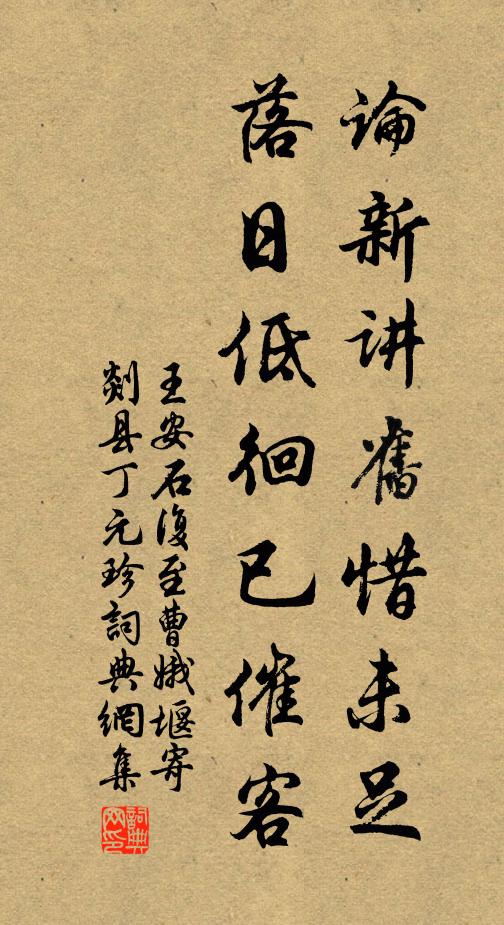 論新讲舊惜未足
落日低徊已催客
王安石復至曹娥堰寄
剡县丁元珍詞典網集
詞典
网印